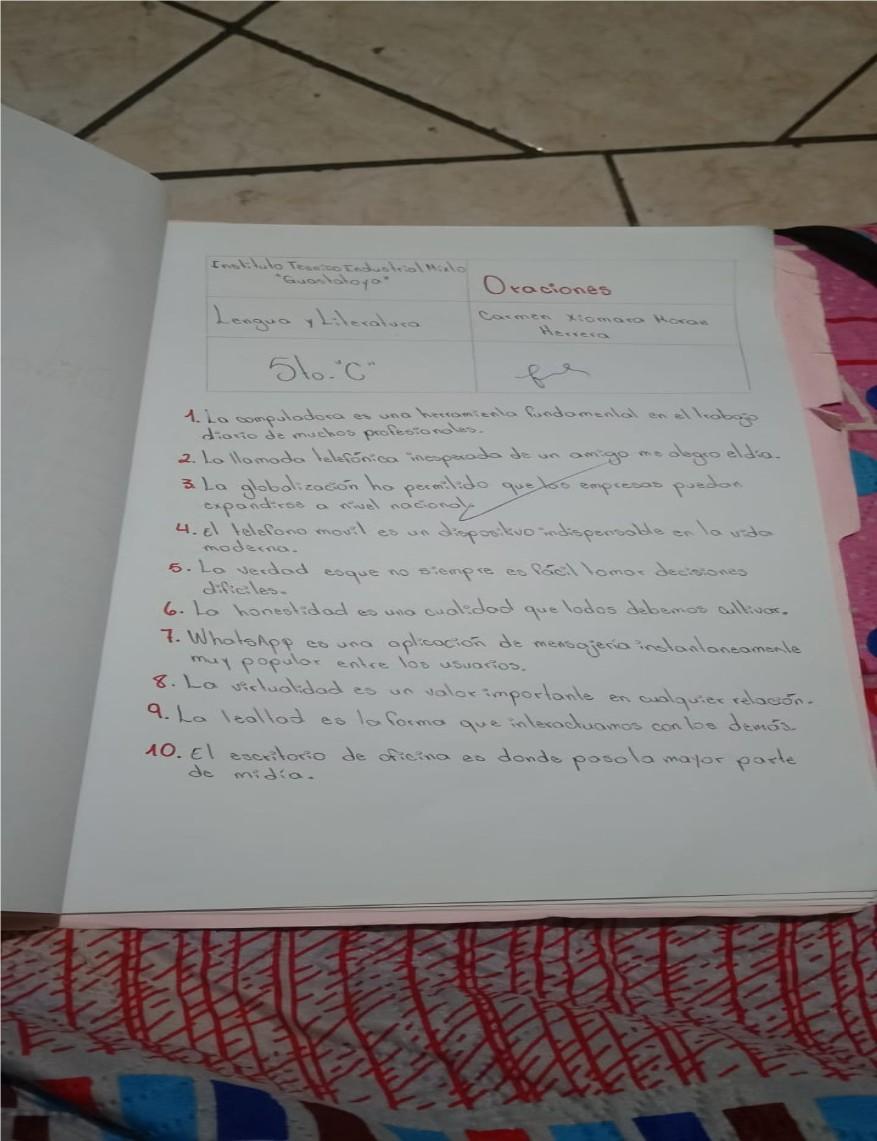 Instituto Tecnico Industrial Mixto
"Guastatoya"
Oraciones
Lengua y Literatura
Carmen Xiomara Moran
Herrera
5to. "C"
1. La computadora es una herramienta fundamental en el trabajo
diario de muchos profesionales.
2. La llamada telefónica inesperada de un amigo me alegro el día.
3. La globalización ha permitido que las empresas puedan
expandirse a nivel nacional.
4. el telefono movil es un dispositivo indispensable en la vida
moderna.
5. La verdad esque no siempre es fácil tomar decisiones
dificiles.
6. La honestidad es una cualidad que todos debemos cultivar.
7. WhatsApp es una aplicación de mensajería instantaneamente
muy popular entre los usuarios.
8. La virtualidad es un valor importante en cualquier relación.
9. La lealtad es la forma que interactuamos con los demás.
10. El escritorio de oficina es donde paso la mayor parte
de mi día.